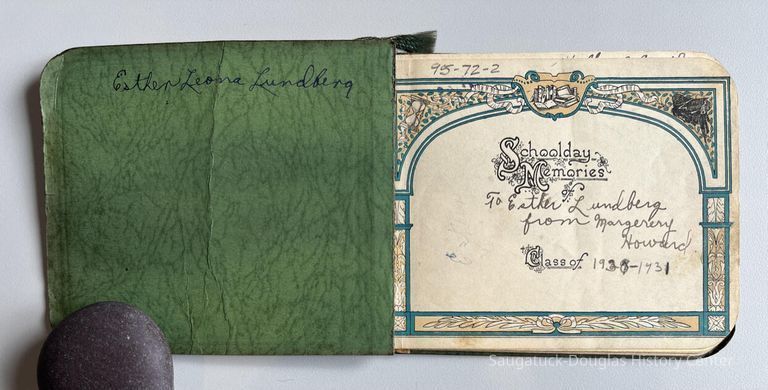 Esther Leona Lundberg
95-72-2
Schoolday
Memories
of
To Esther Lundberg
from Margerery
Howard
Class of 1930-1931
Saugatuck-Douglas History Center